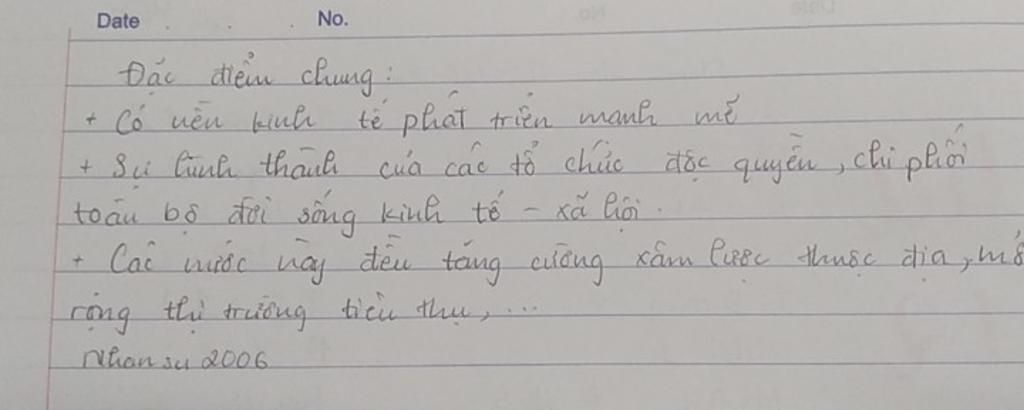 Date No.
Đặc điểm chung:
+ Có nền kinh tế phát triển mạnh mẽ
+ Sự hình thành của các tổ chức độc quyền, chi phối
toàn bộ đời sống kinh tế - xã hội.
+ Các nước này đều tăng cường xâm lược thuộc địa, mở
rộng thị trường tiêu thụ, ...
Nhansu 2006